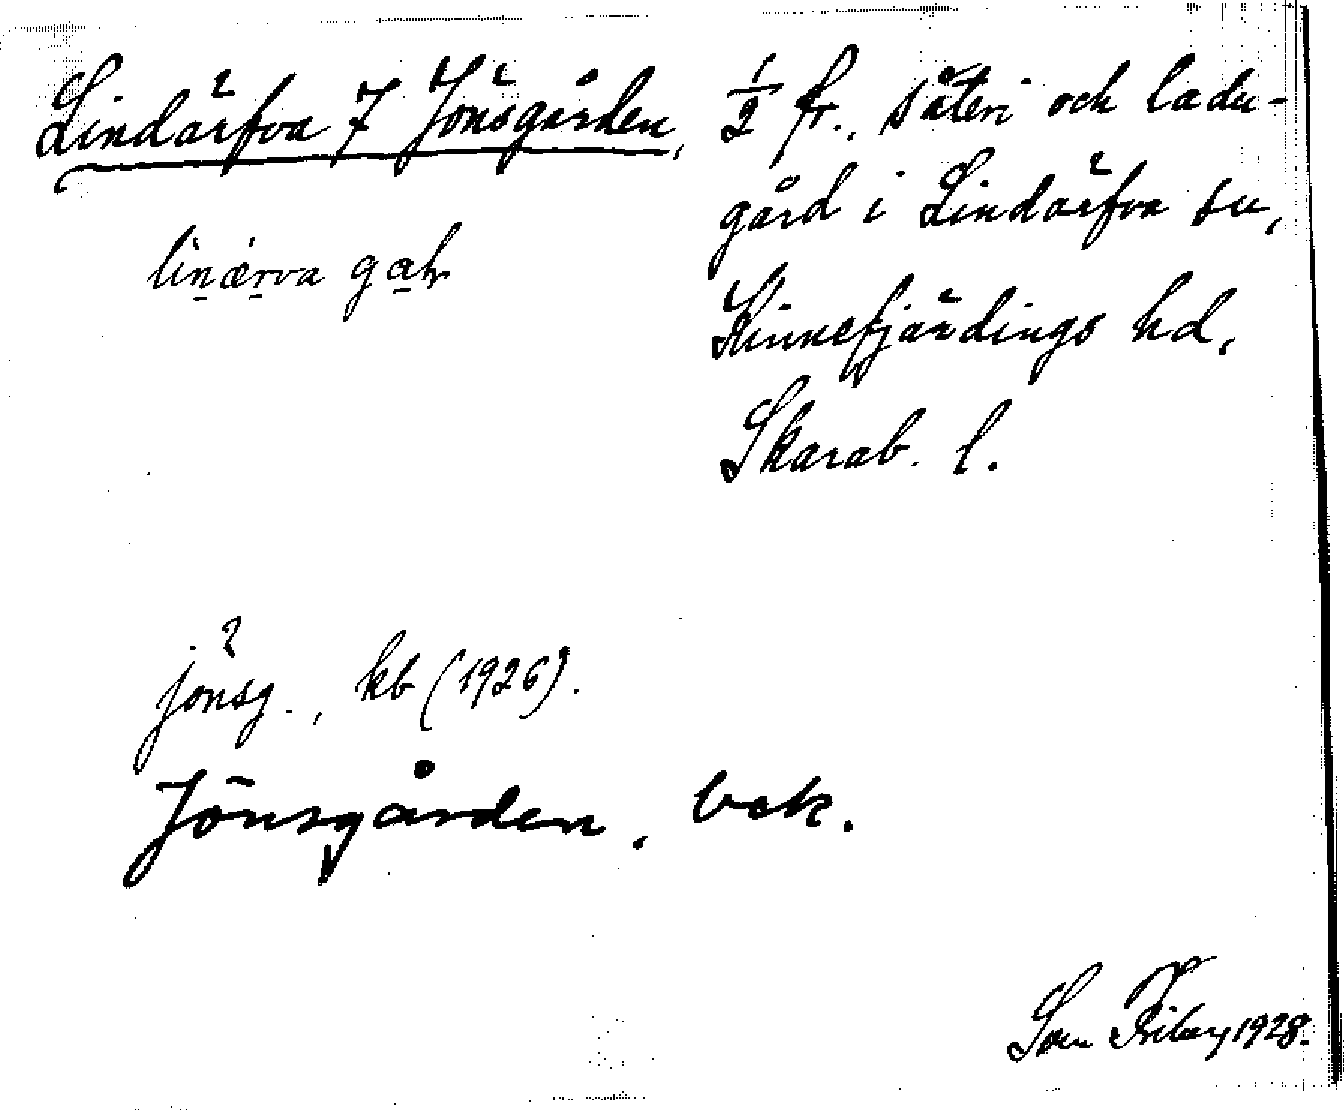 Lindärfva 7 Jönsgården,
½ fr. säteri och ladu-
gård i Lindärfva sn,
Kinnefjärdings hd,
Skarab. l.
linærva gaḷ
jönsg., kb (1926).
Jönsgården, bek.
Friberg 1928.